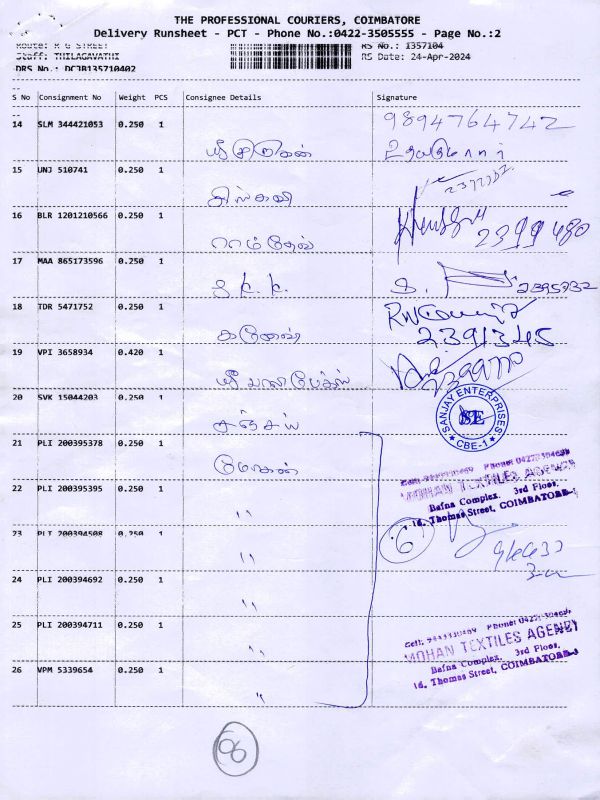 THE PROFESSIONAL COURIERS, COIMBATORE
Delivery Runsheet - PCT - Phone No.:0422-3505555 - Page No.:2
Route: R G STREET RS No.: 1357104
Staff: THILAGAVATHI RS Date: 24-Apr-2024
DRS No.: DCJB135710402
S No Consignment No Weight PCS Consignee Details Signature
14 SLM 344421053 0.250 1 ஸ்ரீ முருகன் 9894764742
15 UNJ 510741 0.250 1
16 BLR 1201210566 0.250 1 ராம்தேவ் 2399480
17 MAA 865173596 0.250 1 S.K.K.
18 TDR 5471752 0.250 1 கணேஷ் 2391345
19 VPI 3658934 0.420 1
20 SVK 15044203 0.250 1 சஞ்சய் SANJAY ENTERPRISES SE CBE-1
21 PLI 200395378 0.250 1 மோகன்
22 PLI 200395395 0.250 1 " MOHAN TEXTILES AGENCY
Bafna Complex, 3rd Floor,
16, Thomas Street, COIMBATORE-1
23 PLI 200394508 0.250 1 " 6
24 PLI 200394692 0.250 1 "
25 PLI 200394711 0.250 1 " MOHAN TEXTILES AGENCY
Bafna Complex, 3rd Floor,
16, Thomas Street, COIMBATORE-1
26 VPM 5339654 0.250 1 "
96